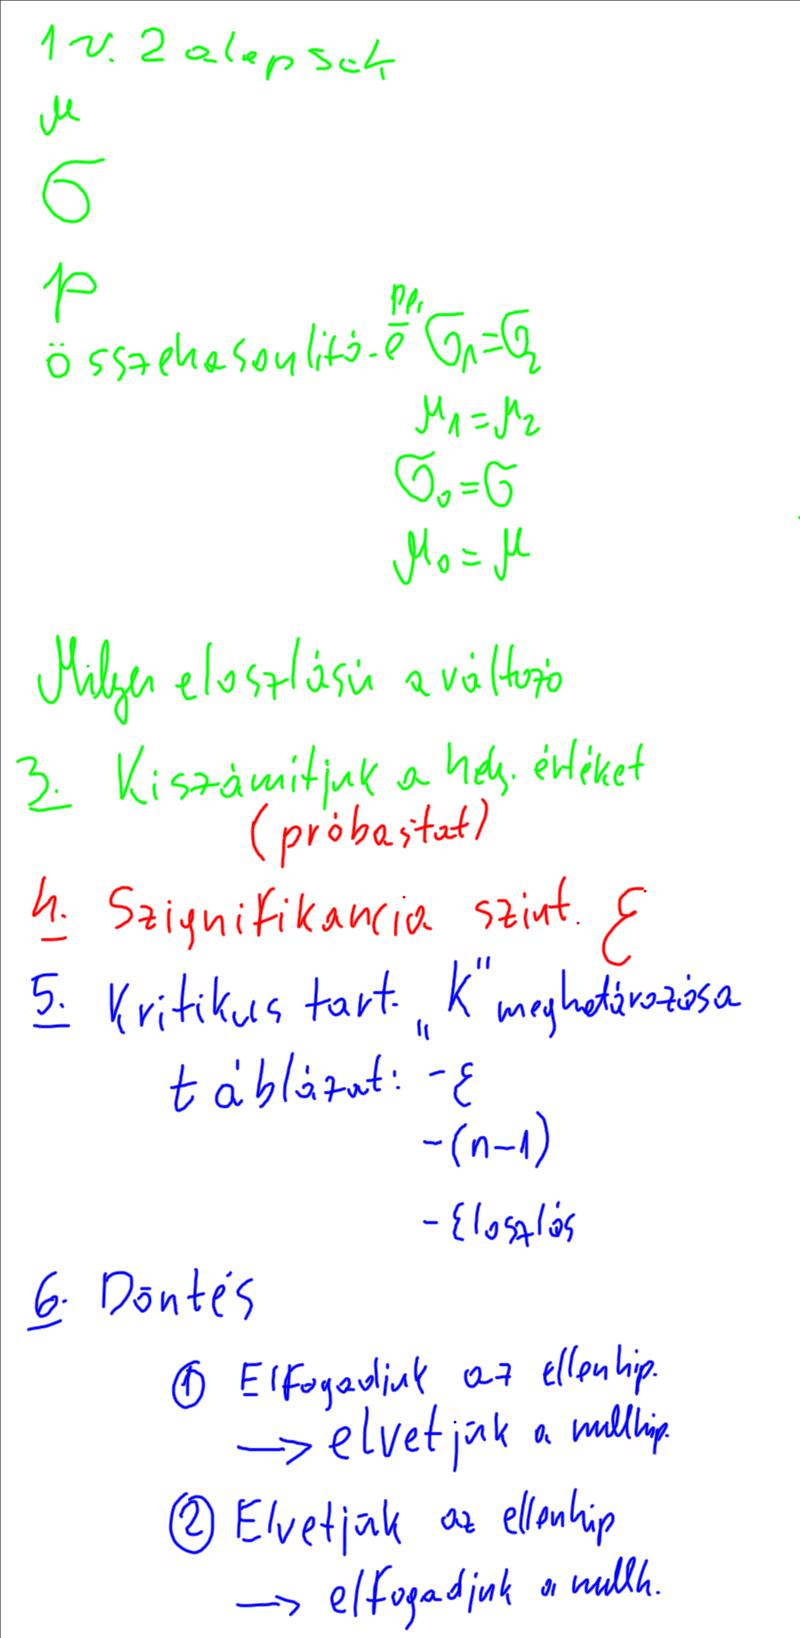 1 v. 2 alapsok
μ
σ
p
összehasonlító-e pl. σ₁=σ₂
μ₁=μ₂
σ₀=σ
μ₀=μ
Milyen eloszlású a változó
3. Kiszámítjuk a hely. értéket
(próbastat)
4. Szignifikancia szint. ε
5. Kritikus tart. „K" meghatározása
táblázat: -ε
-(n-1)
-Eloszlás
6. Döntés
① Elfogadjuk az ellenhip.
→ elvetjük a nullhip.
② Elvetjük az ellenhip
→ elfogadjuk a nullh.